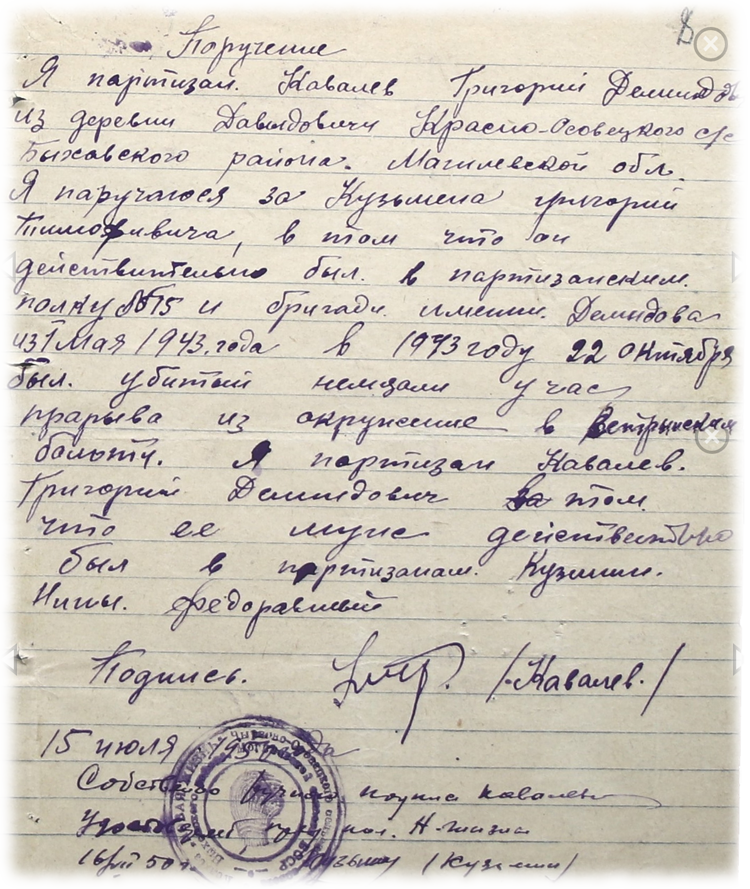 8
Поручение
Я партизан. Кавалев Григорий Демидов
из деревни Давыдовичи Красно-Осовецкого с/с
Быховского района. Магилевской обл.
Я паручаюся за Кузьмена григорий
Тимофивича, в том что он
действительно был. в партизанским.
полку №15 и бригади. имени. Демидова
из 1 Мая 1943. года в 1943 году 22 октября
был. убитый немцами у час
прарыва из окружение в
балоти. Я партизан Кавалев.
Григорий Демидович за том.
что ее муже действительно
был в партизанам. Кузмини.
Нины. Федоравный
Подпись. /Кавалев./
15 июля
подпись Кавалев
(Кузьмин)